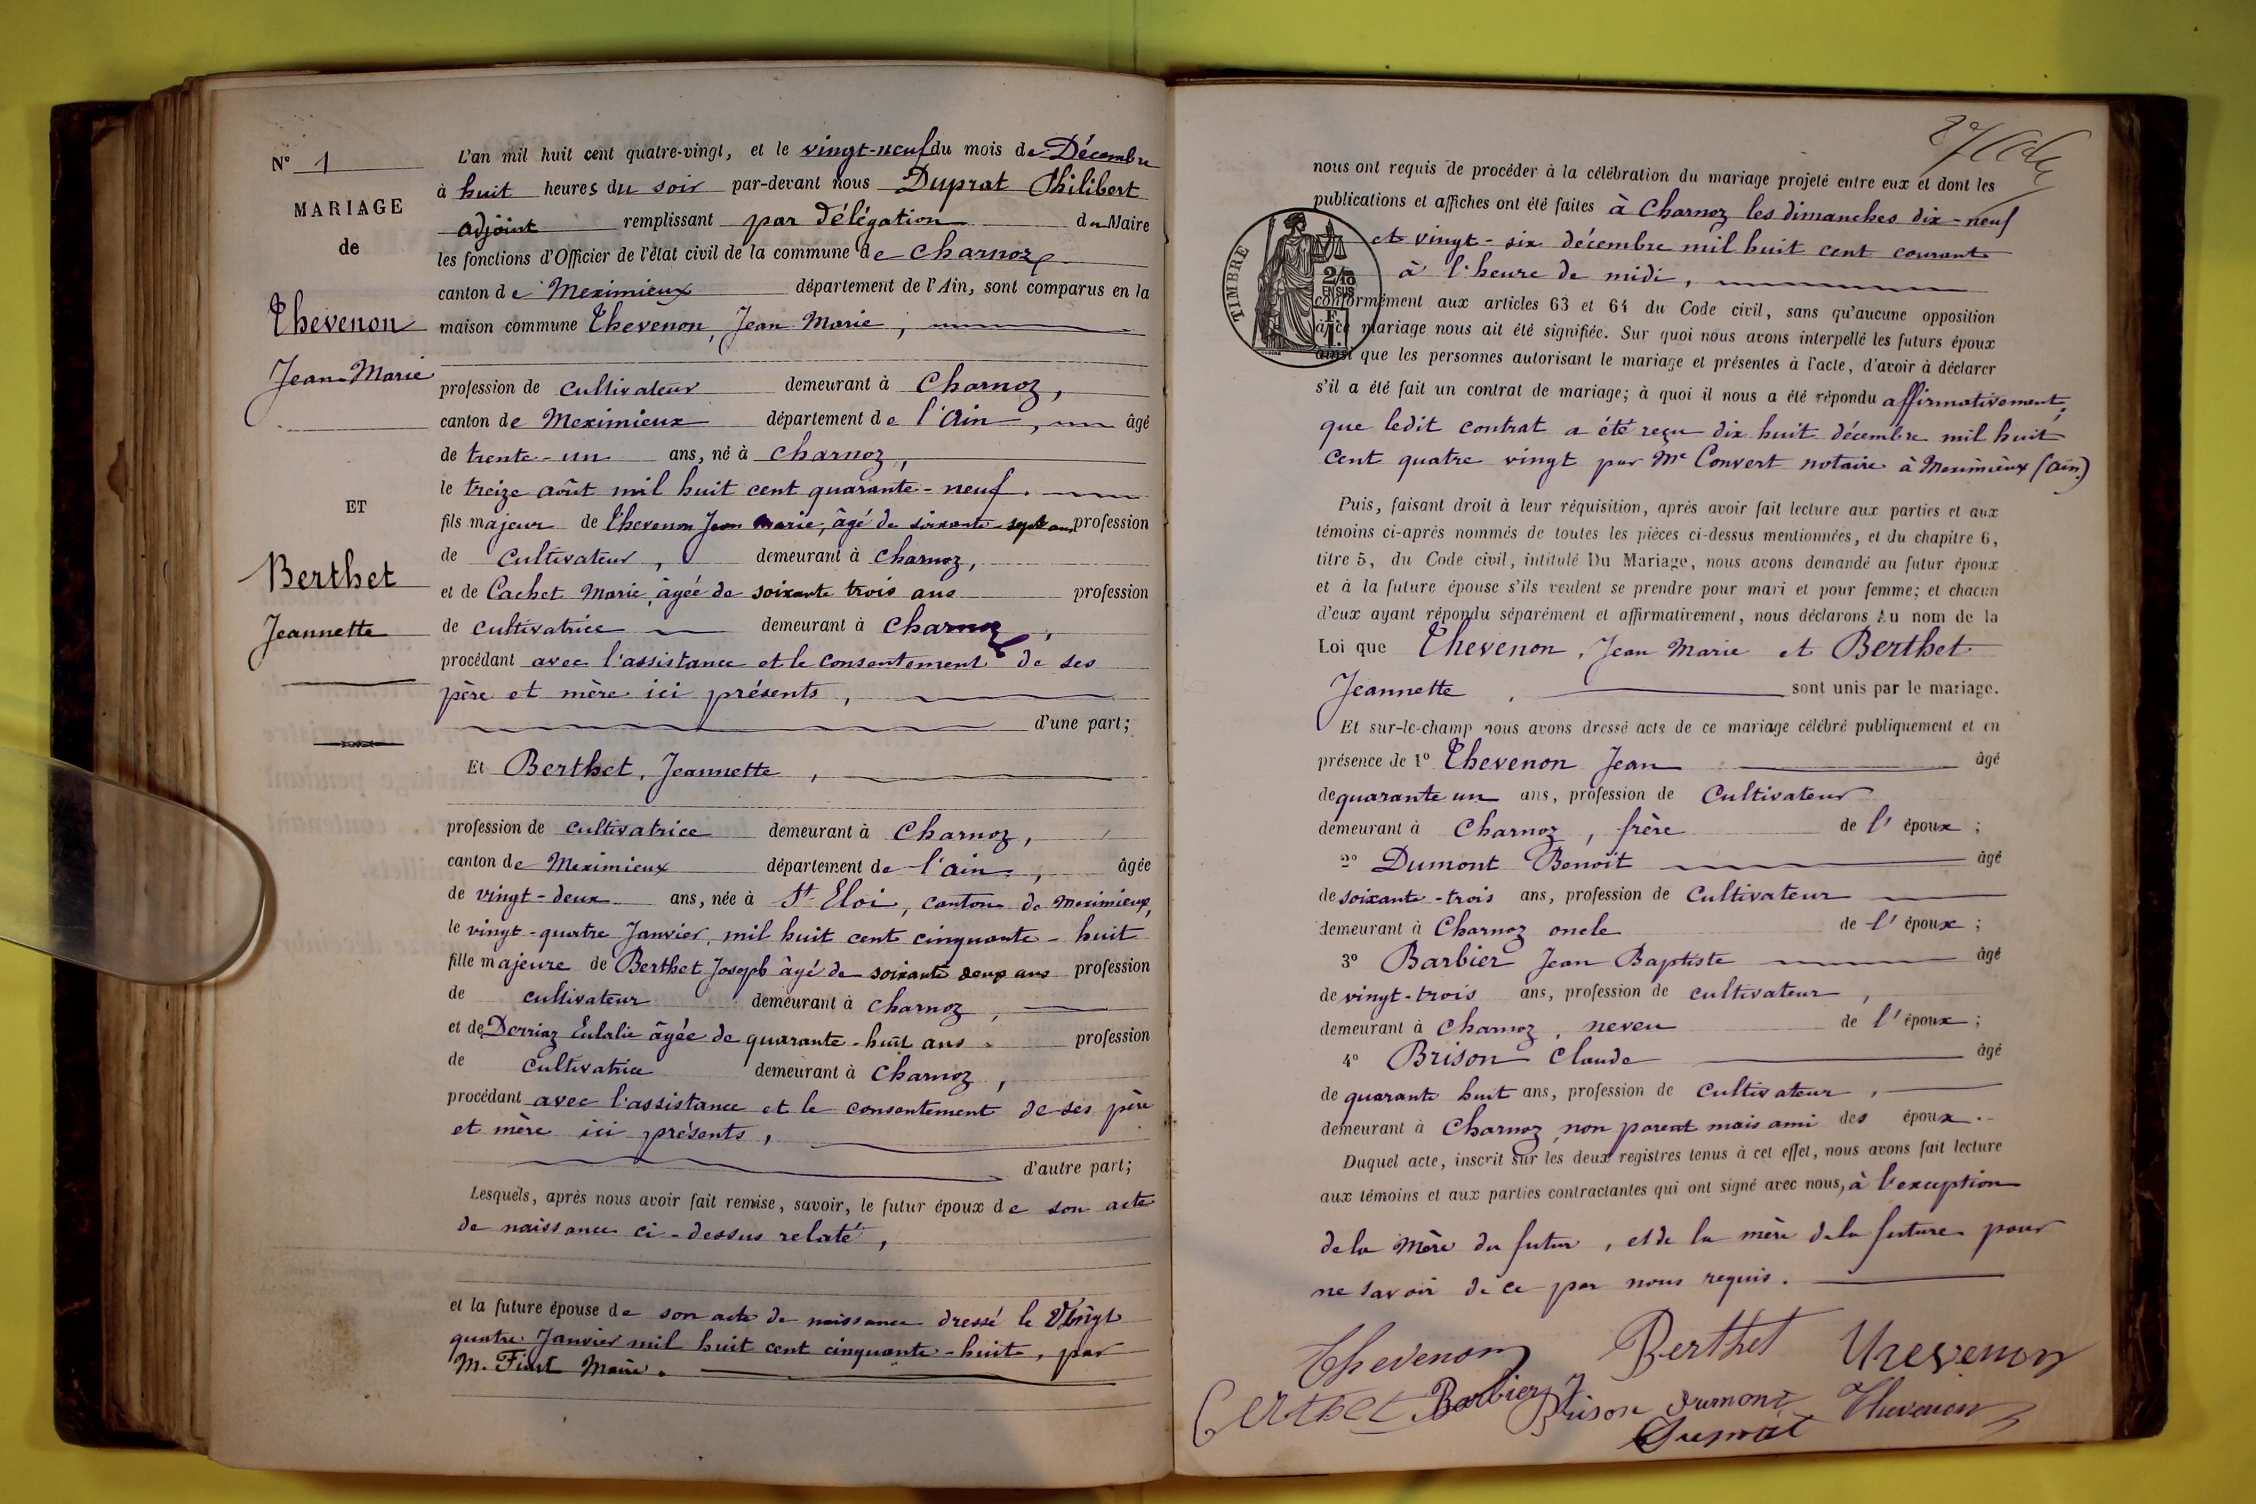 N° 1
MARIAGE
de
Thevenon
Jean-Marie
ET
Berthet
Jeannette
L'an mil huit cent quatre-vingt, et le vingt-neuf du mois de Décembre
à huit heures du soir par-devant nous Duprat Philibert
adjoint remplissant par délégation du Maire
les fonctions d'Officier de l'état civil de la commune de Charnoz
canton de Meximieux département de l'Ain, sont comparus en la
maison commune Thevenon, Jean Marie,
profession de cultivateur demeurant à Charnoz,
canton de Meximieux département de l'Ain, âgé
de trente-un ans, né à Charnoz,
le treize août mil huit cent quarante-neuf.
fils majeur de Thevenon Jean Marie, âgé de soixante-sept ans profession
de Cultivateur, demeurant à Charnoz,
et de Cachet Marie, âgée de soixante trois ans profession
de cultivatrice demeurant à Charnoz,
procédant avec l'assistance et le consentement de ses
père et mère ici présents,
d'une part;
Et Berthet, Jeannette,
profession de cultivatrice demeurant à Charnoz,
canton de Meximieux département de l'Ain, âgée
de vingt-deux ans, née à St Eloi, canton de Meximieux,
le vingt-quatre Janvier, mil huit cent cinquante-huit
fille majeure de Berthet Joseph âgé de soixante deux ans profession
de cultivateur demeurant à Charnoz,
et de Derriaz Eulalie âgée de quarante-huit ans profession
de cultivatrice demeurant à Charnoz,
procédant avec l'assistance et le consentement de ses père
et mère ici présents,
d'autre part;
Lesquels, après nous avoir fait remise, savoir, le futur époux de son acte
de naissance ci-dessus relaté,
et la future épouse de son acte de naissance dressé le Vingt
quatre Janvier mil huit cent cinquante-huit, par
M. Maire.
nous ont requis de procéder à la célébration du mariage projeté entre eux et dont les
publications et affiches ont été faites à Charnoz les dimanches dix-neuf
et vingt-six décembre mil huit cent courant
à l'heure de midi,
TIMBRE
2/10
EN SUS
conformément aux articles 63 et 64 du Code civil, sans qu'aucune opposition
à ce mariage nous ait été signifiée. Sur quoi nous avons interpellé les futurs époux
ainsi que les personnes autorisant le mariage et présentes à l'acte, d'avoir à déclarer
s'il a été fait un contrat de mariage; à quoi il nous a été répondu affirmativement,
que ledit contrat a été reçu dix huit décembre mil huit
cent quatre vingt par Me Convert notaire à Meximieux (Ain.)
Puis, faisant droit à leur réquisition, après avoir fait lecture aux parties et aux
témoins ci-après nommés de toutes les pièces ci-dessus mentionnées, et du chapitre 6,
titre 5, du Code civil, intitulé Du Mariage, nous avons demandé au futur époux
et à la future épouse s'ils veulent se prendre pour mari et pour femme; et chacun
d'eux ayant répondu séparément et affirmativement, nous déclarons Au nom de la
Loi que Thevenon, Jean Marie et Berthet
Jeannette, sont unis par le mariage.
Et sur-le-champ nous avons dressé acte de ce mariage célébré publiquement et en
présence de 1° Thevenon Jean âgé
de quarante un ans, profession de Cultivateur
demeurant à Charnoz, frère de l'époux;
2° Dumont Benoit âgé
de soixante-trois ans, profession de Cultivateur
demeurant à Charnoz oncle de l'époux;
3° Barbier Jean Baptiste âgé
de vingt-trois ans, profession de cultivateur,
demeurant à Charnoz, neveu de l'époux;
4° Brison Claude âgé
de quarante huit ans, profession de Cultivateur,
demeurant à Charnoz, non parent mais ami des époux.
Duquel acte, inscrit sur les deux registres tenus à cet effet, nous avons fait lecture
aux témoins et aux parties contractantes qui ont signé avec nous, à l'exception
de la Mère du futur, et de la mère de la future pour
ne savoir de ce par nous requis.
Thevenon Berthet Thevenon
Berthet Barbier J Brison Dumont Thevenon
Duprat